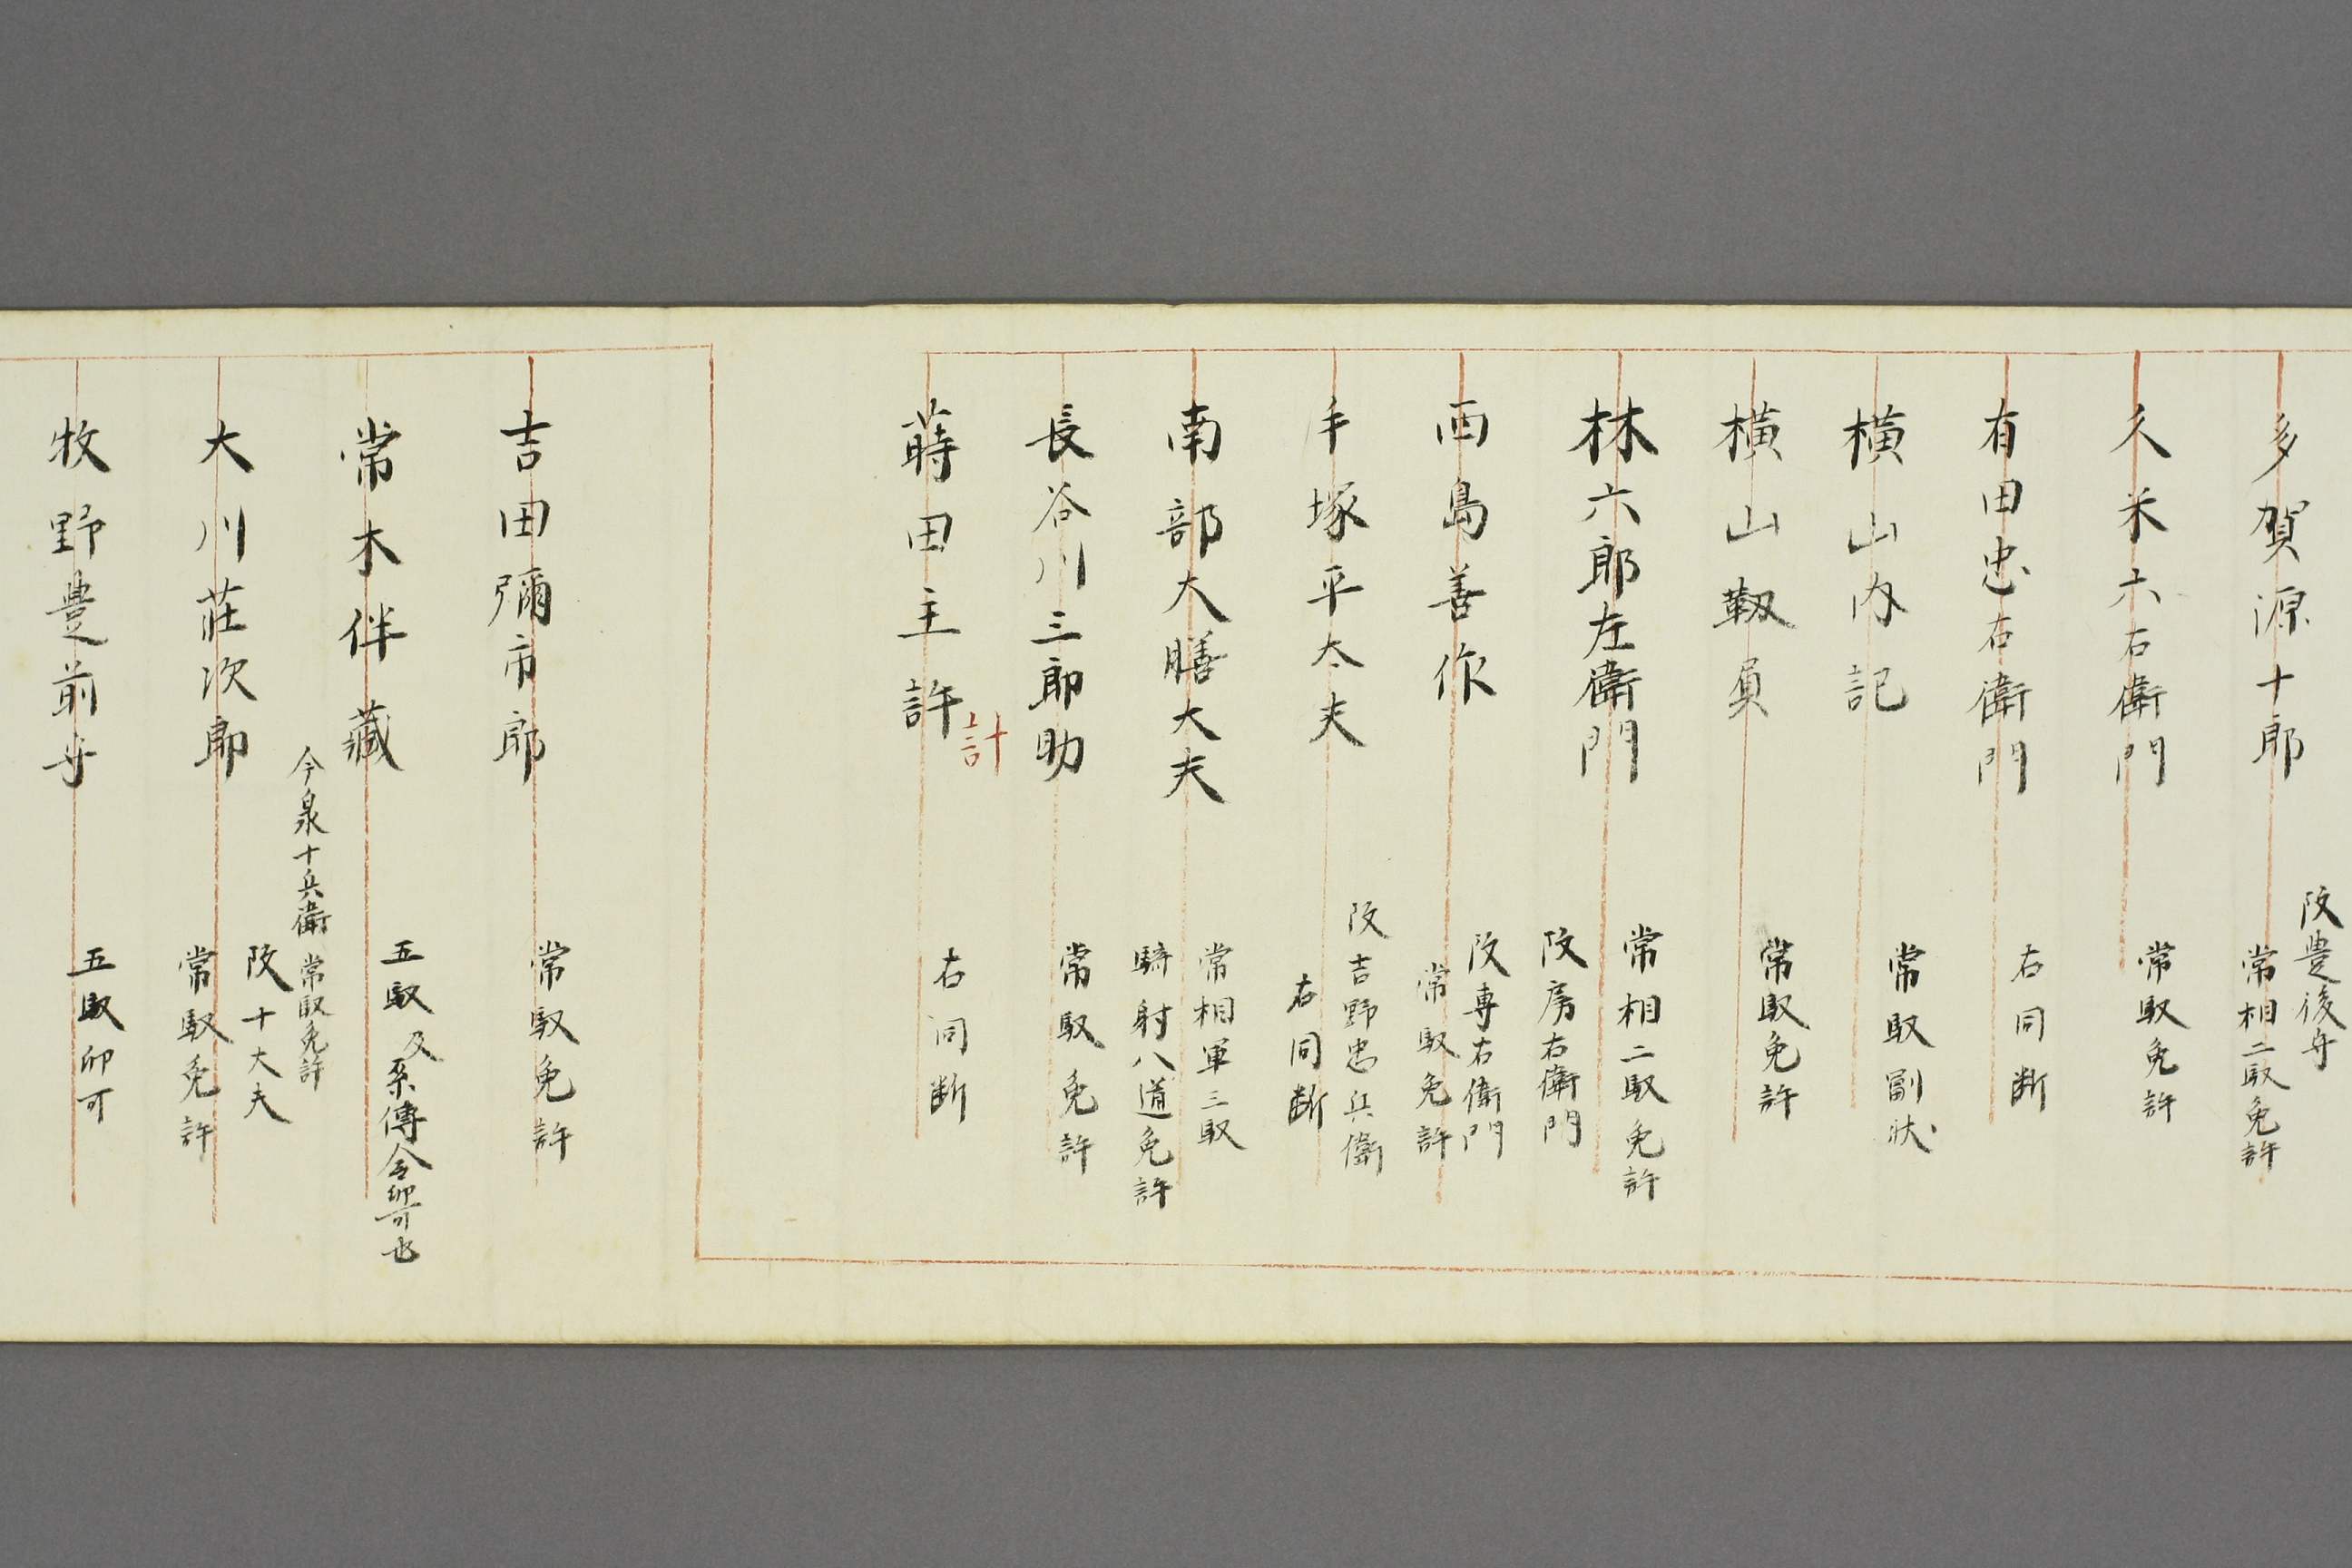 多賀源十郎
改豊後守
常相二馭免許
久米六右衞門
常馭免許
有田忠右衞門
右同断
横山内記
常馭副状
横山靱負
常馭免許
林六郎左衞門
常相二馭免許
改房右衞門
西島善作
改専右衞門
常馭免許
手塚平太夫
改吉野忠兵衞
右同断
南部大膳大夫
常相軍三馭
騎射八道免許
長谷川三郎助
常馭免許
蒔田主許
計
右同断
吉田彌市郎
常馭免許
常木伴藏
五馭及系傳令印可也
今泉十兵衞 常馭免許
大川荘次郎
改十大夫
常馭免許
牧野豊前守
五馭印可